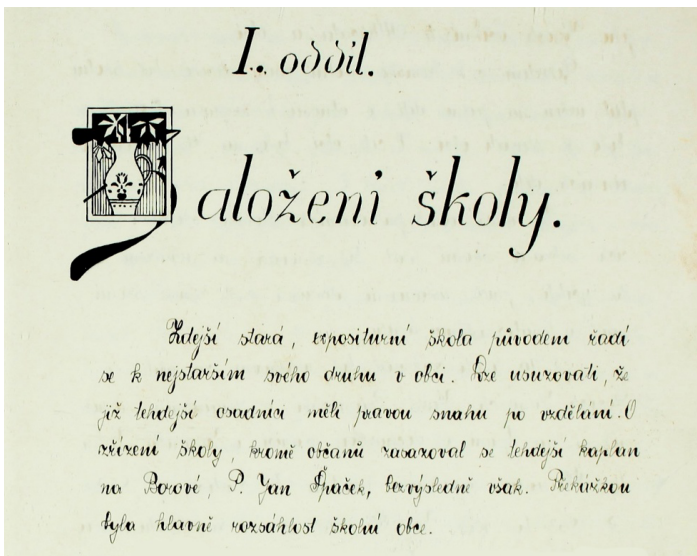 I. oddíl.
Založení školy.
Zdejší stará, expositurní škola původem řadí
se k nejstarším svého druhu v obci. Lze usuzovati, že
již tehdejší osadníci měli pravou snahu po vzdělání. O
zřízení školy, kromě občanů zasazoval se tehdejší kaplan
na Borové, P. Jan Špaček, bezvýsledně však. Překážkou
byla hlavně rozsáhlost školní obce.